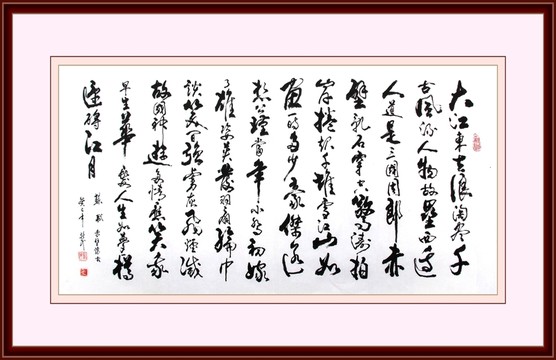 大江东去浪淘尽千
古風流人物故壘西邊
人道是三國周郎赤
壁亂石穿空驚濤拍
岸捲起千堆雪江山如
畫一时多少豪傑遥
想公瑾當年小喬初嫁
了雄姿英發羽扇綸巾
談笑间強虜灰飛煙滅
故國神遊多情應笑我
早生華髮人生如夢樽
還酹江月
蘇軾赤壁懷古